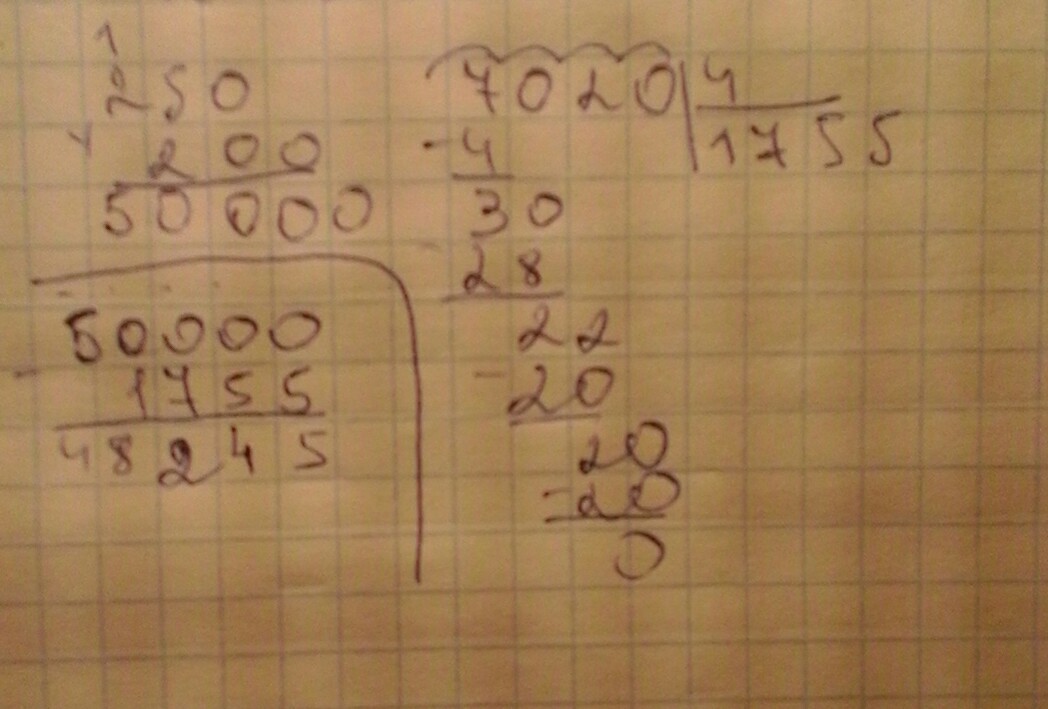 1
250
× 200
50000
50000
- 1755
48245
7020 | 4
1755
- 4
30
- 28
22
- 20
20
- 20
0